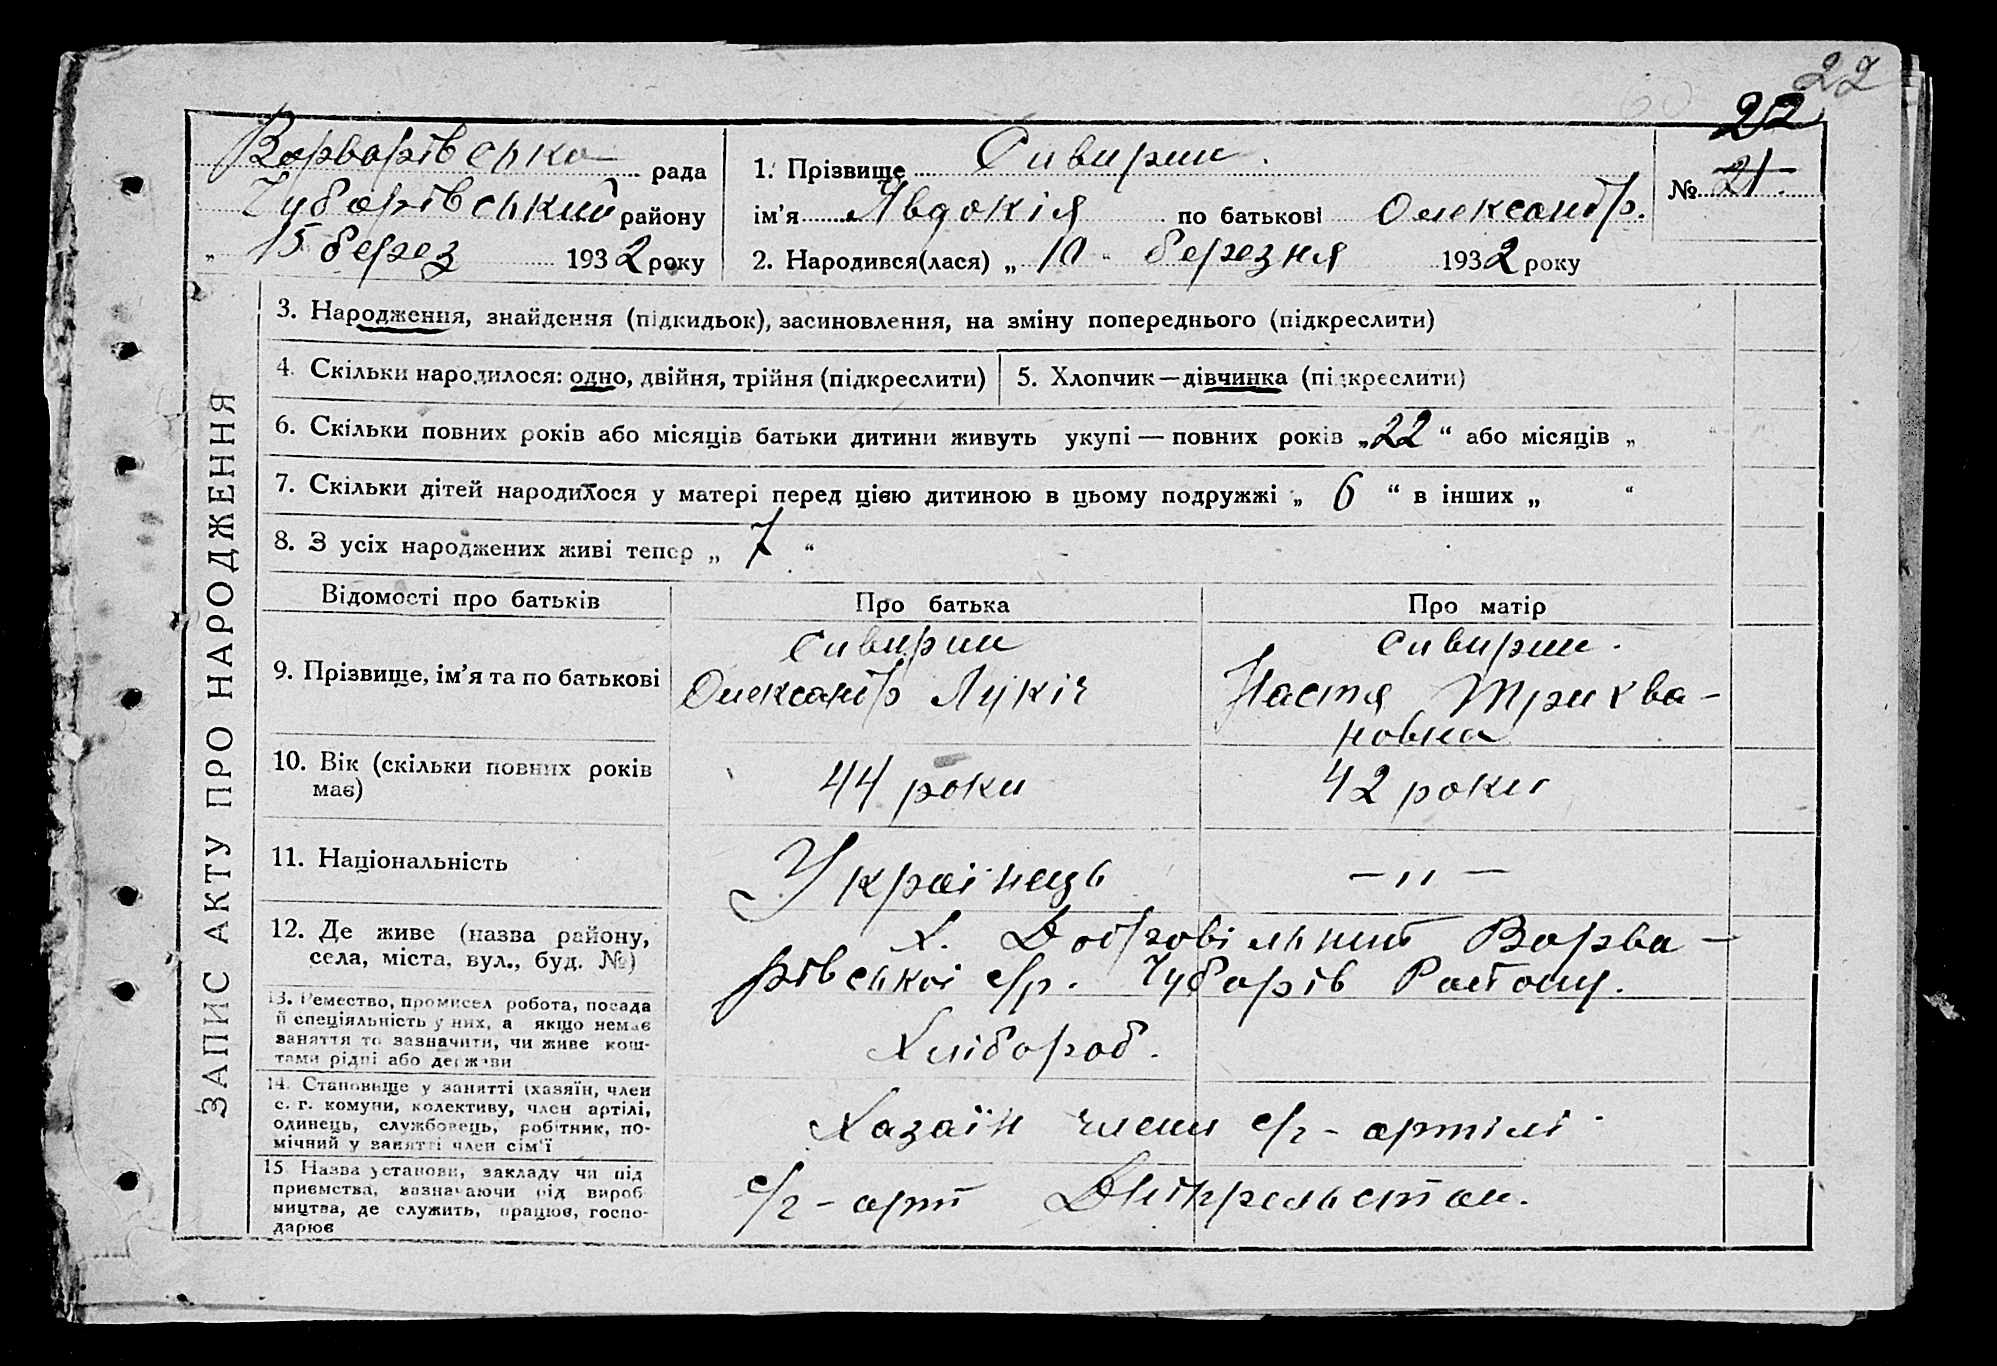 22
22
Варварівська рада
Чубарівський району
„ 15 берез 1932 року
1. Прізвище Сивирин.
ім’я Явдокія по батькові Олександр.
2. Народився(лася) „ 10 “ березня 1932 року
№ 21.
ЗАПИС АКТУ ПРО НАРОДЖЕННЯ
3. Народження, знайдення (підкидьок), засиновлення, на зміну попереднього (підкреслити)
4. Скільки народилося: одно, двійня, трійня (підкреслити)
5. Хлопчик—дівчинка (підкреслити)
6. Скільки повних років або місяців батьки дитини живуть укупі — повних років „22“ або місяців „ “
7. Скільки дітей народилося у матері перед цією дитиною в цьому подружжі „ 6 “ в інших „ “
8. З усіх народжених живі тепер „ 7 “
Відомості про батьків
Про батька
Про матір
9. Прізвище, ім’я та по батькові
Сивирин
Олександр Лукіч
Сивирин.
Настя Трихва-
новна
10. Вік (скільки повних років
має)
44 роки
42 роки
11. Національність
Українець
— „ —
12. Де живе (назва району,
села, міста, вул., буд. №)
Х. Добровільний Варва-
рівської с/р. Чубарів Району.
13. Ремество, промисел робота, посада
й спеціяльність у них, а якщо немає
заняття то зазначити, чи живе кош-
тами рідні або держави
Хлібороб.
14. Становище у занятті (хазяїн, член
с. г. комуни, колективу, член артілі,
одинець, службовець, робітник, по-
мічний у занятті член сім’ї
Хазаїн члени с/г-артілі
15 Назва установи, закладу чи під
приємства, зазначаючи рід вироб
ництва, де служить, працює, госпо-
дарює
с/г-арт Дніпрельстан.